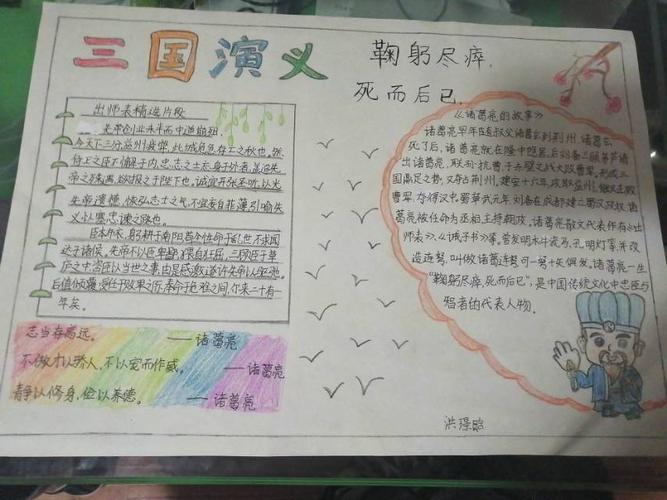 三国演义
鞠躬尽瘁,
死而后已.
出师表精选片段
先帝创业未半而中道崩殂,
今天下三分,益州疲弊,此诚危急存亡之秋也。然
侍卫之臣不懈于内,忠志之士忘身于外者,盖追先
帝之殊遇,欲报之于陛下也。诚宜开张圣听,以光
先帝遗德,恢弘志士之气,不宜妄自菲薄,引喻失
义,以塞忠谏之路也。
臣本布衣,躬耕于南阳,苟全性命于乱世,不求闻
达于诸侯。先帝不以臣卑鄙,猥自枉屈,三顾臣于草
庐之中,咨臣以当世之事,由是感激,遂许先帝以驱驰。
后值倾覆,受任于败军之际,奉命于危难之间,尔来二十有
一年矣。
志当存高远。
——诸葛亮
不傲才以骄人,不以宠而作威。
——诸葛亮
静以修身,俭以养德。
——诸葛亮
《诸葛亮的故事》
诸葛亮早年随叔父诸葛玄到荆州,诸葛玄
死了后,诸葛亮就在隆中隐居,后刘备三顾茅庐请
出诸葛亮,联孙抗曹于赤壁之战大败曹军,形成三
国鼎足之势,又夺占荆州。建安十六年,攻取益州,继又击败
曹军,夺得汉中。蜀章武元年,刘备在成都建立蜀汉政权,诸
葛亮被任命为丞相,主持朝政,诸葛亮散文代表作有《出
师表》、《诫子书》等。曾发明木牛流马、孔明灯等,并改
造连弩,叫做诸葛连弩,可一弩十矢俱发。诸葛亮一生
“鞠躬尽瘁,死而后已”,是中国传统文化中忠臣与
智者的代表人物.